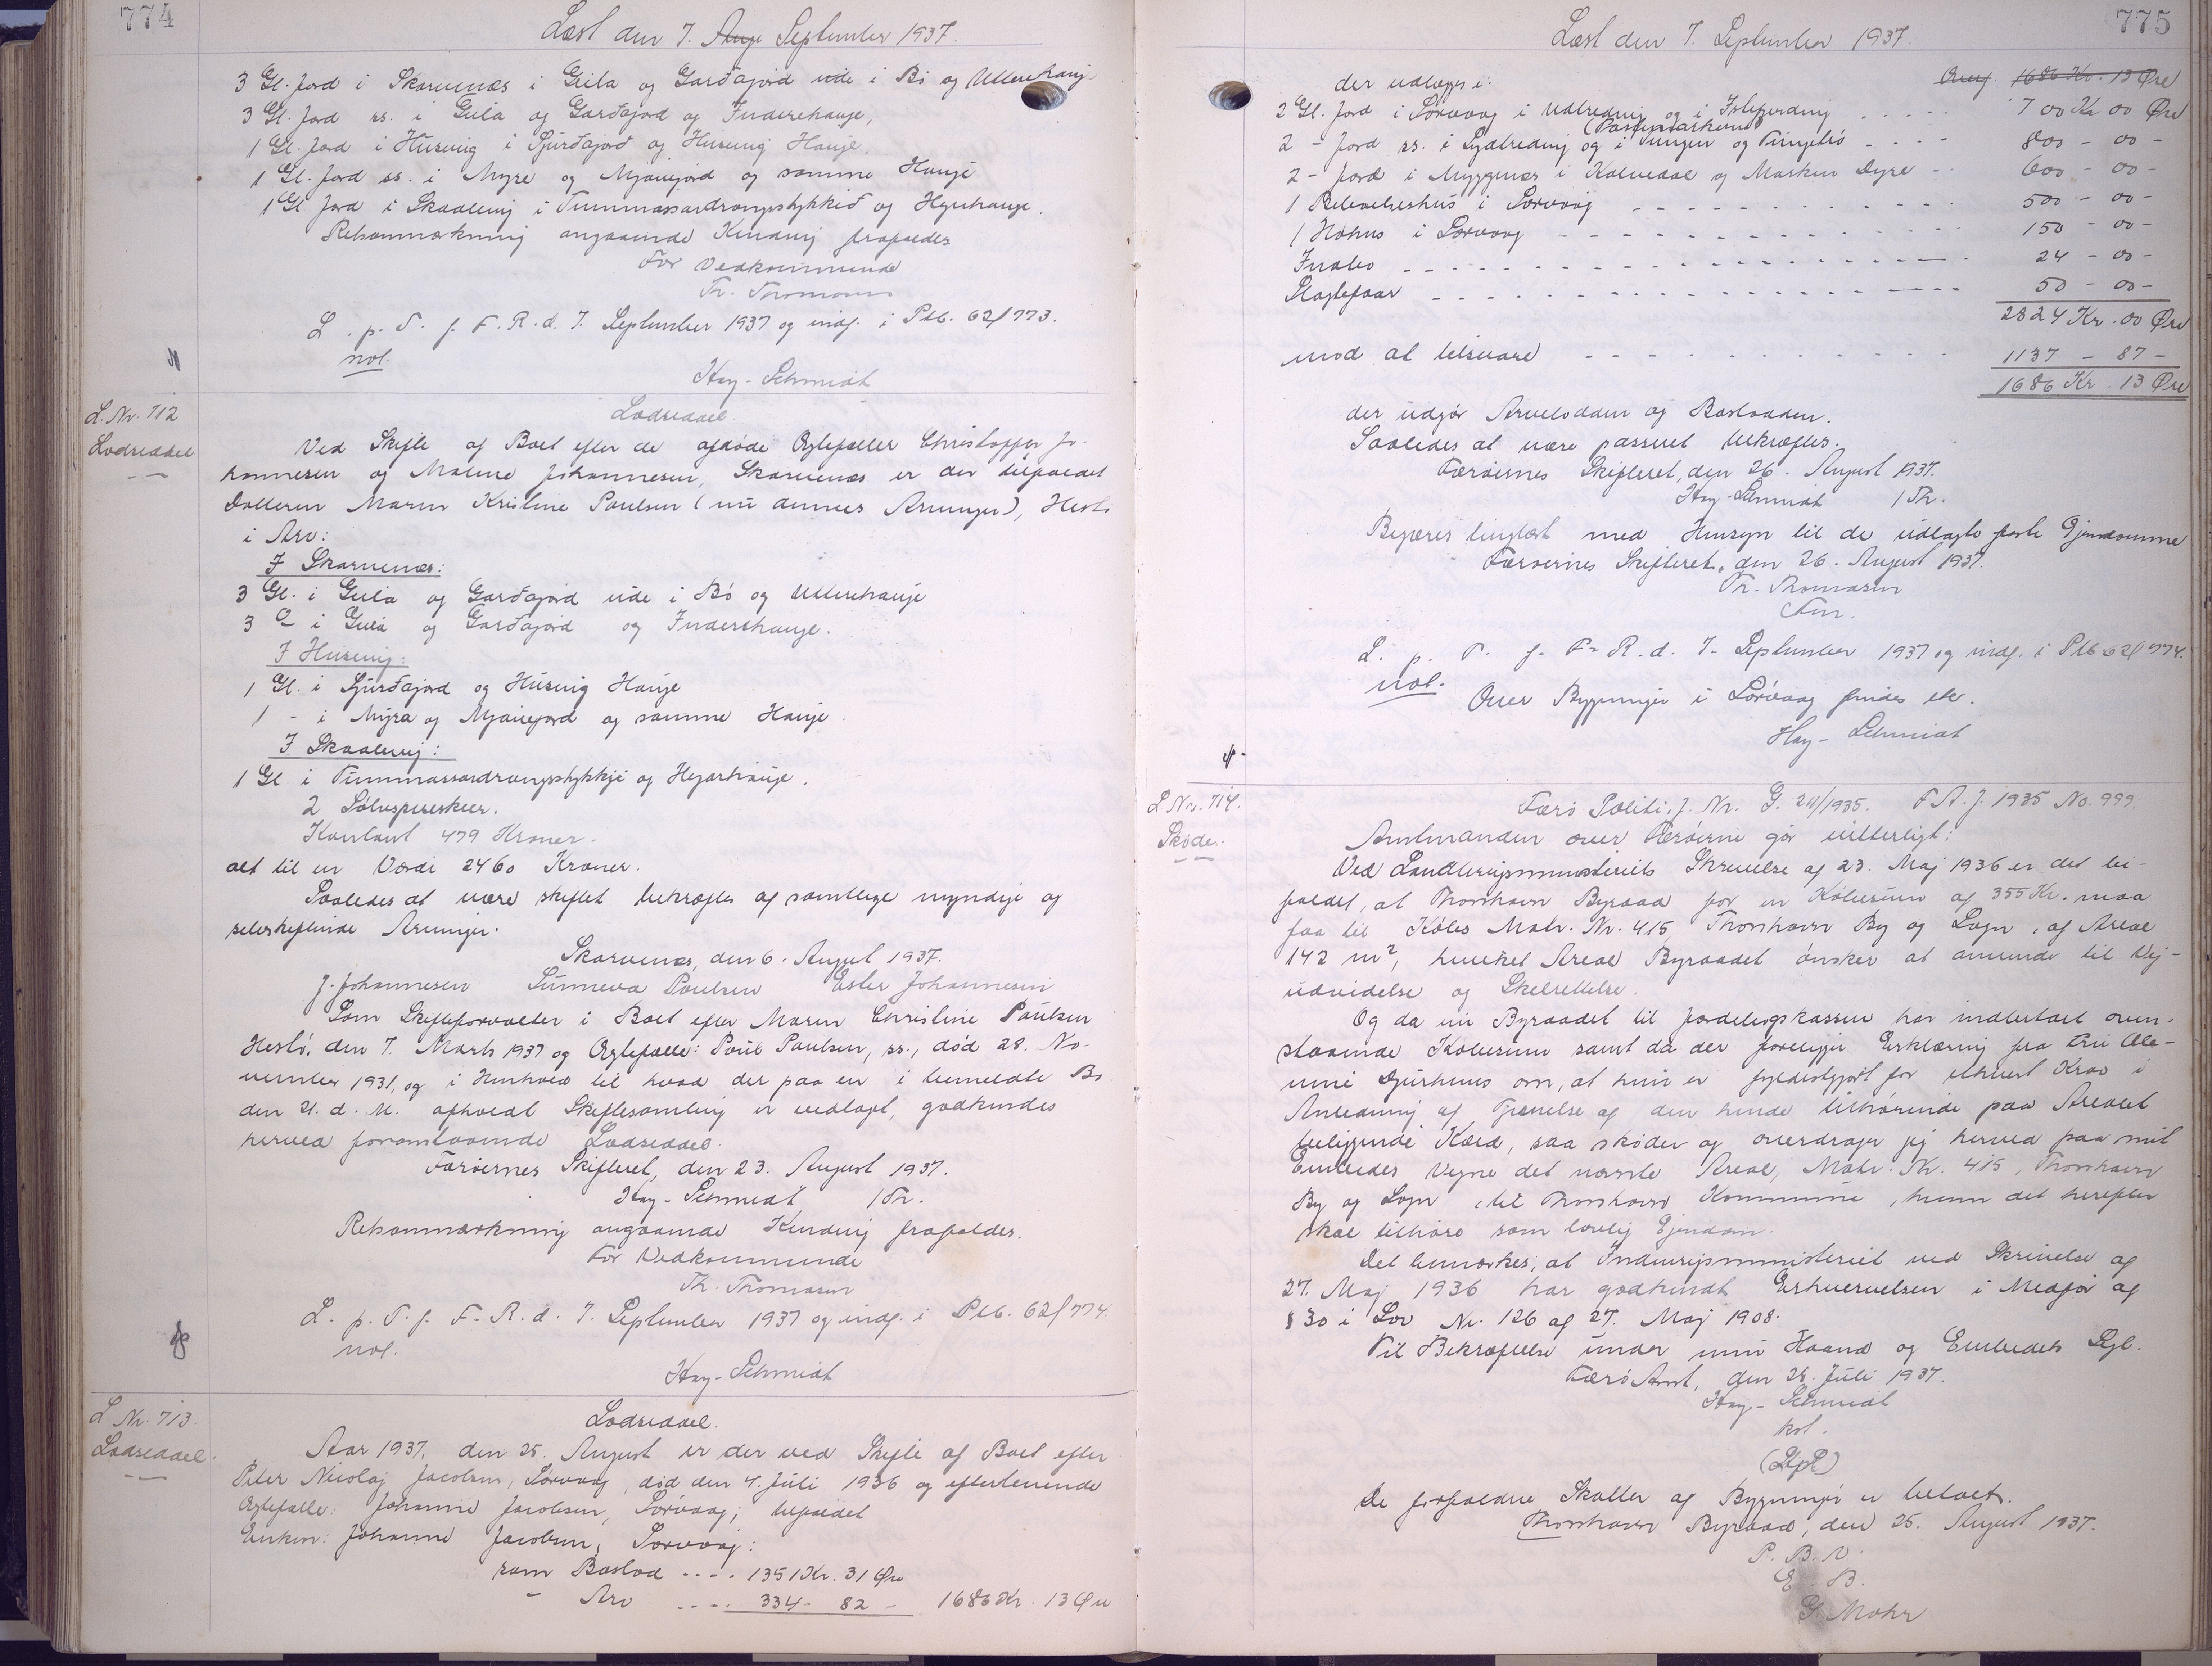 774
Læst den 7. Aug September 1937.
3 Gl. Jord i Skarvenæs i Geila og Garðajord ude i Bø og Utterehauje
3 Gl. Jord ss. i Geila og Garðajord og Inderehauje,
1 Gl. Jord i Husevig i Sjurðajord og Husevig Hauje.
1 Gl. Jord ss. i Myre og Mjavejord og samme Hauje
1 Gl. Jord i Skaalevig i Tummassardrangsstykkið og Hyrehauje.
Retsanmærkning angaaende Kending frafaldes
For Vedkommende
Th. Thomasen
L. p. T. f. F. R. d. 7. September 1937 og indf. i Ptb. 62/773.
nol.
Hay-Schmidt
L. Nr. 712
Lodseddel
Lodseddel
Ved Skifte af Boet efter de afdøde Ægtefæller Christoffer Jo-
hannesen og Maline Johannesen, Skarvenæs er der tilfaldet
Datteren Maren Kristine Poulsen (nu dennes Arvinger), Hestø
i Arv:
I Skarvenæs:
3 Gl. i Geila og Garðajord ude i Bø og Utterehauje
3 - i Geila og Garðajord og Inderehauje.
I Husevig:
1 Gl. i Sjurðajord og Husevig Hauje
1 - i Myra og Mjavejord og samme Hauje.
I Skaalevig:
1 Gl i Tummassardrangsstykkje og Hejarhauje.
2 Sølvspiseskeer.
Kontant 479 Kroner.
alt til en Værdi 2460 Kroner.
Saaledes at være skiftet bekræftes af samtlige myndige og
selvskiftende Arvinger.
Skarvenæs, den 6. August 1937.
J. Johannesen Sunneva Poulsen Ester Johannesen
Som Skifteforvalter i Boet efter Maren Christine Poulsen
Hestø, den 7. Marts 1937 og Ægtefælle: Poul Poulsen, ss., død 28. No-
vember 1931, og i Henhold til hvad der paa en i bemeldte Bo
den 21. d. M. afholdt Skiftesamling er vedtaget, godkendes
herved foranstaaende Lodseddel.
Færøernes Skifteret, den 23. August 1937.
Hay-Schmidt /Th.
Retsanmærkning angaaende Kending frafaldes.
For Vedkommende
Th. Thomasen
L. p. T. f. F. R. d. 7. September 1937 og indf. i Ptb. 62/774
nol.
Hay-Schmidt
L Nr. 713.
Lodseddel.
Lodseddel.
Aar 1937, den 25. August er der ved Skifte af Boet efter
Peter Nicolaj Jacobsen, Sørvaag, død den 4. Juli 1936 og efterlevende
Ægtefælle: Johanne Jacobsen, Sørvaag; tilfaldet
Enken: Johanne Jacobsen, Sørvaag:
som Boslod .... 1351 Kr. 31 Øre
- Arv .... 334 - 82 - 1686 Kr. 13 Øre
775
Læst den 7. September 1937.
Overf. 1686 Kr. 13 Øre
der udlægges i:
2 Gl. Jord i Sørvaag i Udlreding og i Islefjerding ..... 700 Kr 00 Øre
2 - Jord ss. i Sydlreding og i Tungen og Tingebø .... 800 - 00 -
2 - Jord i Myggenæs i Kalvedal og Marken Dyre .. 600 - 00 -
1 Beboelseshus i Sørvaag ........ 500 - 00 -
1 Høhus i Sørvaag ........ 150 - 00 -
Indbo ........ 24 - 00 -
Slagtefaar ........ 50 - 00 -
2824 Kr. 00 Øre
mod at tilsvare ........ 1137 - 87 -
1686 Kr. 13 Øre
der udgør Arvelodden og Boslodden.
Saaledes at være passeret bekræftes.
Færøernes Skifteret, den 26. August 1937.
Hay-Schmidt /Th.
Begæres tinglæst med Hensyn til de udlagte faste Ejendomme
Færøernes Skifteret, den 26. August 1937.
Th. Thomasen
Fm.
L. p. T. f. F. R. d. 7. September 1937 og indf. i Ptb 62/774.
nol.
Over Bygninger i Sørvaag findes ek.
Hay-Schmidt
L Nr. 714.
Skøde.
Færø Politi, J. Nr. G. 211/1935. F. A. J. 1935 No. 999.
Amtmanden over Færøerne gør vitterligt:
Ved Landbrugsministeriets Skrivelse af 23. Maj 1936 er det bi-
faldet, at Thorshavn Byraad for en Købesum af 355 Kr. maa
faa til Købs Matr. Nr. 415 Thorshavn By og Sogn, af Areal
142 m², hvilket Areal Byraadet ønsker at anvende til Vej-
udvidelse og Skelrettelse.
Og da nu Byraadet til Jordebogskassen har indbetalt oven-
staaende Købesum samt da der foreligger Erklæring fra Fru Ole-
vine Djurhuus om, at hun er fyldestgjort for ethvert Krav i
Anledning af Fjernelse af den hende tilhørende paa Arealet
beliggende Kæld, saa skøder og overdrager jeg herved paa mit
Embedes Vegne det nævnte Areal, Matr. Nr. 415, Thorshavn
By og Sogn, til Thorshavns Kommune, hvem det herefter
skal tilhøre som lovlig Ejendom.
Det bemærkes, at Indenrigsministeriet ved Skrivelse af
27. Maj 1936 har godkendt Erhvervelsen i Medfør af
§ 30 i Lov Nr. 126 af 27. Maj 1908.
Til Bekræftelse under min Haand og Embedets Segl.
Færø Amt, den 28. Juli 1937.
Hay-Schmidt
kst.
(Sgl)
De forfaldne Skatter af Bygninger er betalt.
Thorshavn Byraad, den 25. August 1937.
P. B. V.
E. B.
G. Mohr